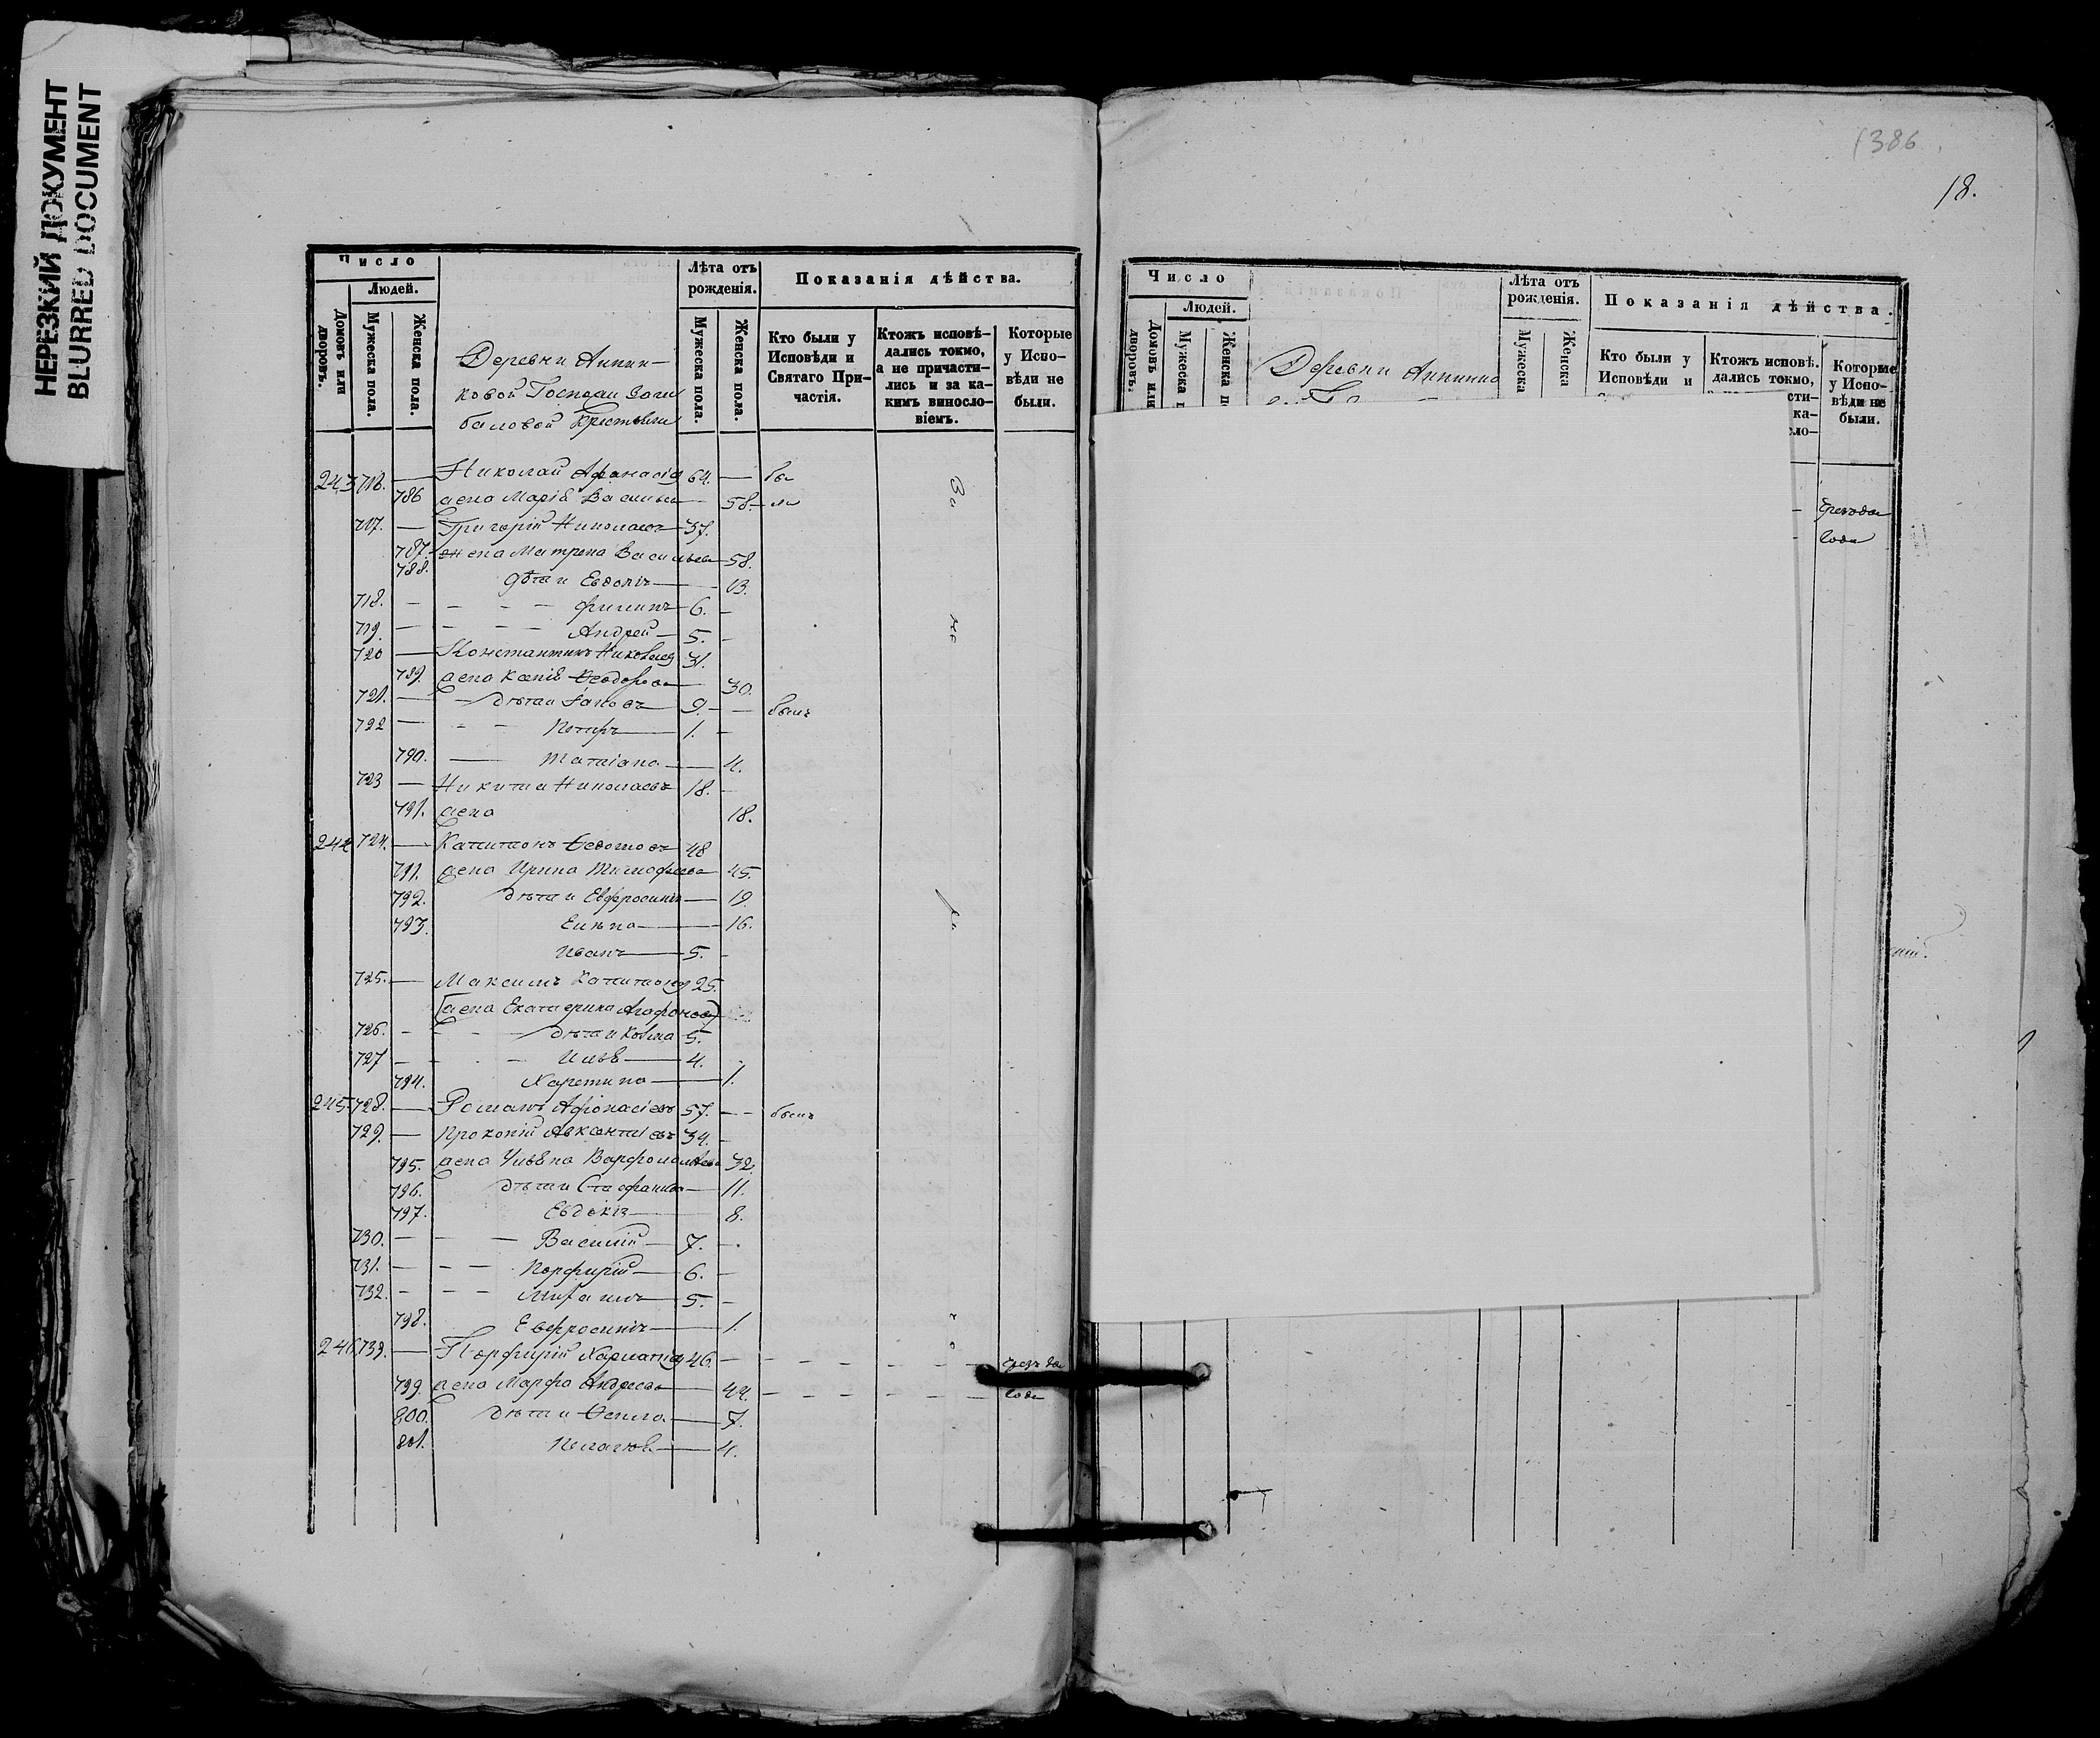 НЕРЕЗКИЙ ДОКУМЕНТ
BLURRED DOCUMENT
Число
Людей.
Домовъ или дворовъ.
Мужеска пола.
Женска пола.
Лѣта отъ рожденія.
Мужеска пола.
Женска пола.
Показанія дѣйства.
Кто были у Исповѣди и Святаго Причастія.
Ктожъ исповѣдались токмо, а не причастились и за какимъ винословіемъ.
Которые у Исповѣди не были.
Деревни Аннин-
ковой Госпожи
Крестьяни
243 716. — Николай Афанасіев 64. — бы
786 жена Марія Васильева — 58. ли
717. — Григорій Николаевъ 37.
787. жена Матрена Васильева 58.
788. дѣти Евдокія — 13.
718. — — — — Филипъ 6. —
719. — — — — Андрей 5. —
720 — Константинъ Николаев 31.
789. жена Ксенія Ѳеодорова — 30.
721. — — дѣти Іаковъ 9. — — былъ
722 — — — Петръ 1. —
790. — Татіана — 4.
723 — Никита Николаевъ 18. —
791. жена 18.
244 724. — Капитонъ Ѳедотовъ 48
791. жена Ирина Тимофеева 45.
792. дѣти Евфросинія — 19.
793. Елена — 16.
Иванъ 5. —
725. — Максимъ Капитонов 25.
(жена Екатерина Агафонова)
726. — — — дѣти Козма 5.
727 — — — Илья 4. —
794. Харитина — 1.
245. 728. — Романъ Афонасіевъ 57. — — былъ
729. — Прокопій Авксентіевъ 34. —
795. жена Ульяна Варфоломѣева 32.
796. дѣти Стефанида — 11.
797. Евдокія — 8.
730. — — — Василій 7. —
731. — — — Порфирій 6. —
732. — — — 5. —
798. Евфросинія — 1.
246 733. — Порфирій 46. — — — — — — чрезъ два
799. жена Марфа Андреева 42. — — — — — — года
800. дѣти — 7.
801. Пелагея — 4.
За
не
1386
18.
Число
Людей.
Домовъ или дворовъ.
Мужеска
Женска
Деревни Аннино
Лѣта отъ рожденія.
Мужеска
Женска
Показанія дѣйства.
Кто были у Исповѣди и
Ктожъ исповѣдались токмо,
Которые у Исповѣди не были.
года